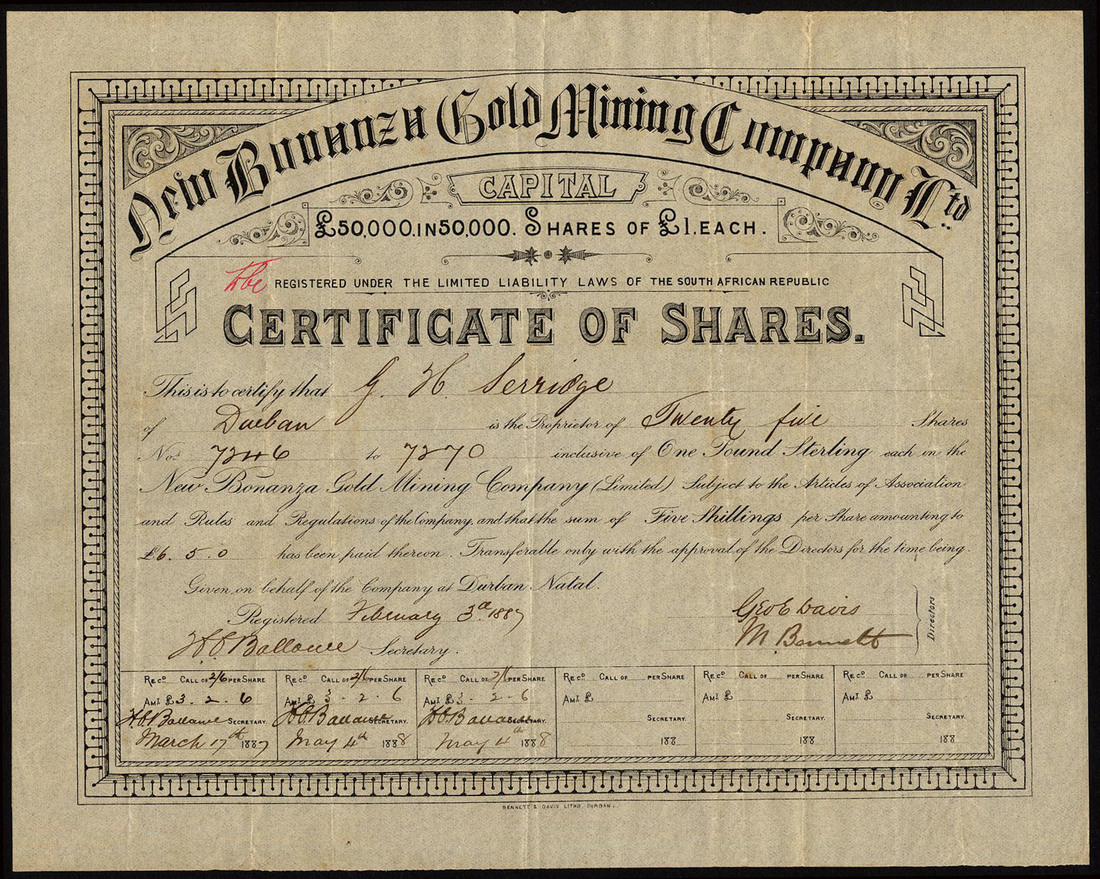 New Bonanza Gold Mining Company Ltd.
CAPITAL
£50,000. IN 50,000. SHARES OF £1. EACH.
REGISTERED UNDER THE LIMITED LIABILITY LAWS OF THE SOUTH AFRICAN REPUBLIC
CERTIFICATE OF SHARES.
This is to certify that G. H. Serridge
of Durban is the Proprietor of Twenty five Shares
Nos 7246 to 7270 inclusive of One Pound Sterling each in the
New Bonanza Gold Mining Company (Limited) Subject to the Articles of Association
and Rules and Regulations of the Company, and that the sum of Five Shillings per Share amounting to
£6.5.0 has been paid thereon. Transferable only with the approval of the Directors for the time being.
Given on behalf of the Company at Durban Natal.
Registered February 3d. 1887
Geo E Davis
M. Bennett
Directors
Secretary.
RECD CALL OF 2/6 PER SHARE RECD CALL OF 2/6 PER SHARE RECD CALL OF 2/6 PER SHARE RECD CALL OF PER SHARE RECD CALL OF PER SHARE RECD CALL OF PER SHARE
AMT £3-2.6 AMT £3-2.6 AMT £3-2-6 AMT £ AMT £ AMT £
SECRETARY. SECRETARY. SECRETARY. SECRETARY. SECRETARY. SECRETARY.
March 17th 1887 May 4th 1888 May 4th 1888 188 188 188
BENNETT & DAVIS LITHO, DURBAN.